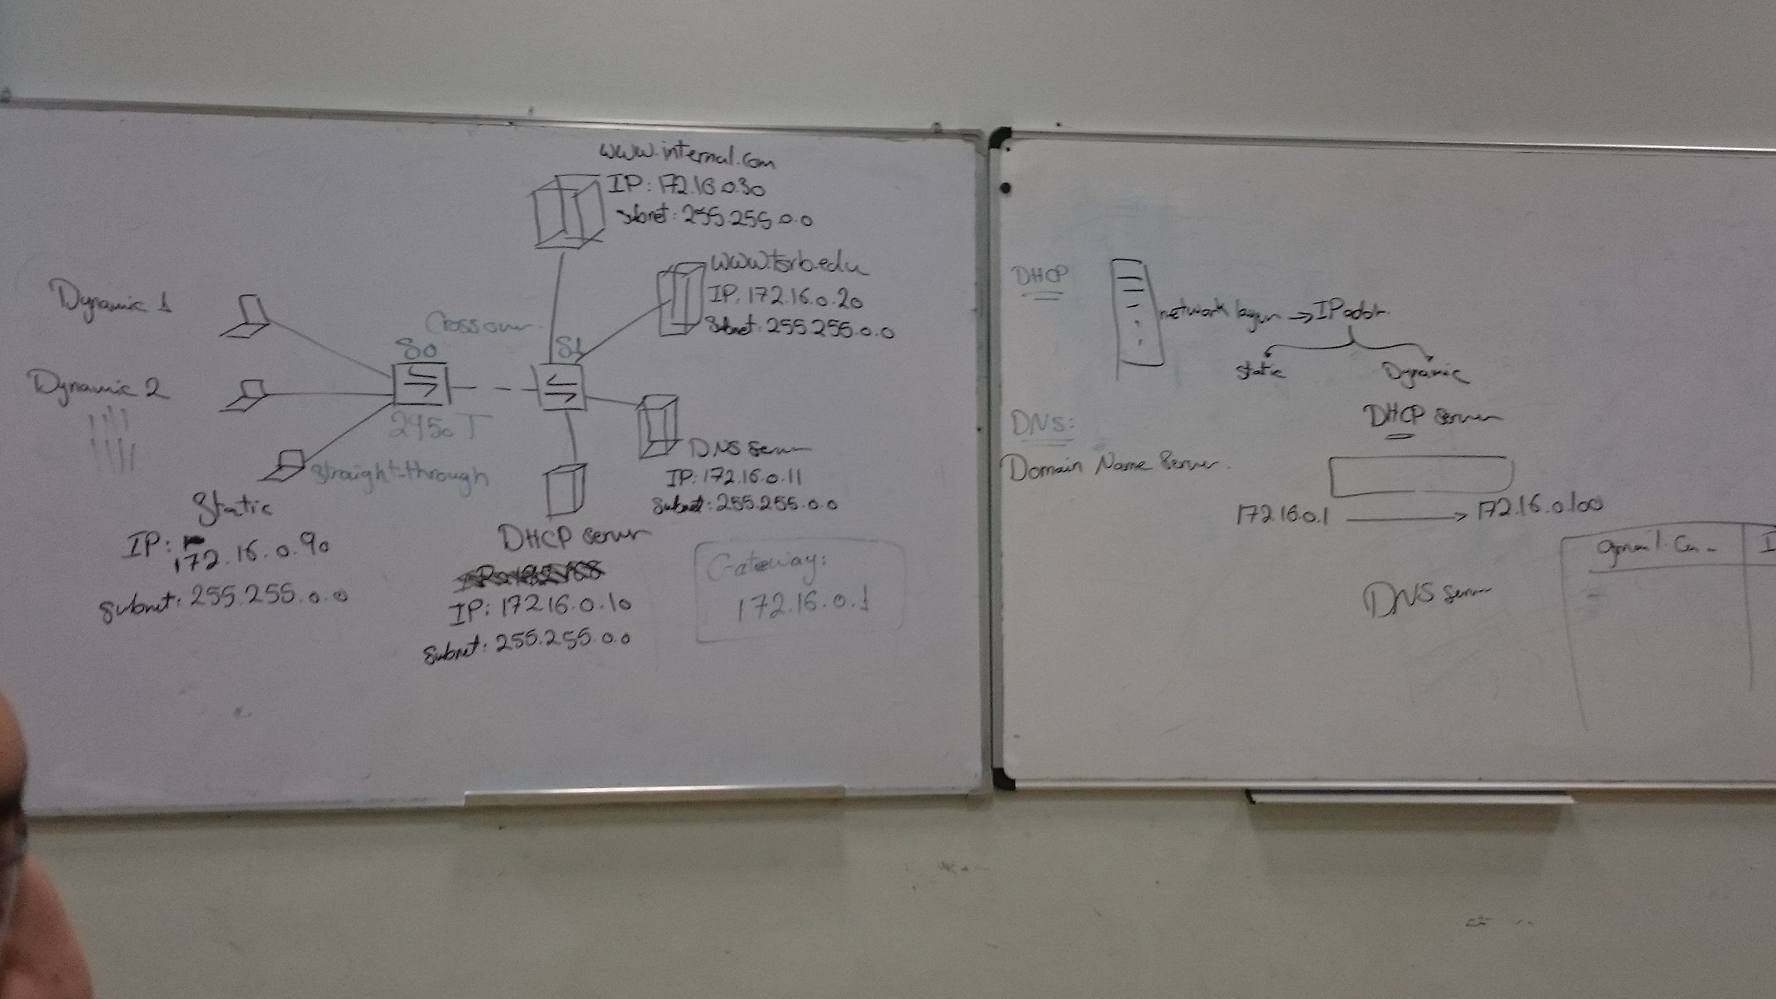 www.internal.com
IP: 172.16.0.30
Subnet: 255.255.0.0
IP: 172.16.0.20
Subnet: 255.255.0.0
Dynamic 1
Crossover
S0
S1
Dynamic 2
2950T
Straight-through
DNS Server
IP: 172.16.0.11
Subnet: 255.255.0.0
Static
IP: 172.16.0.90
subnet: 255.255.0.0
DHCP server
IP: 172.16.0.10
Subnet: 255.255.0.0
Gateway:
172.16.0.1
DHCP
network layer → IP addr.
static
Dynamic
DHCP server
DNS:
Domain Name Server.
172.16.0.1 → 172.16.0.100
DNS server